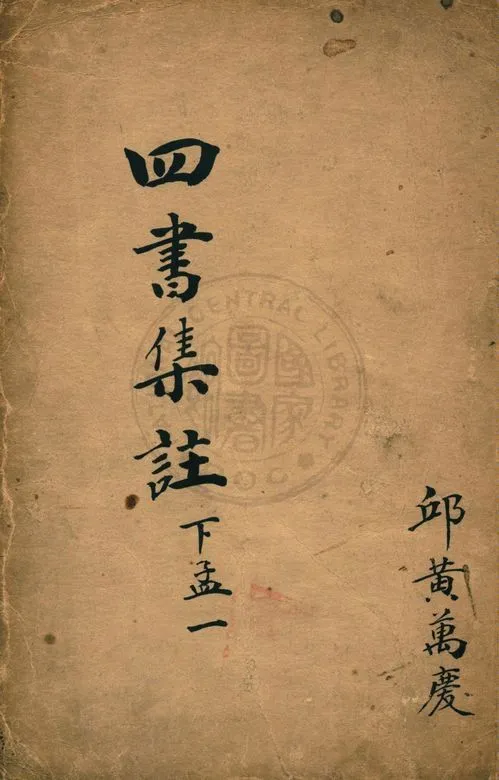 四書集註
下孟一
邱黃萬慶
CENTRAL LIBRARY
國家圖書